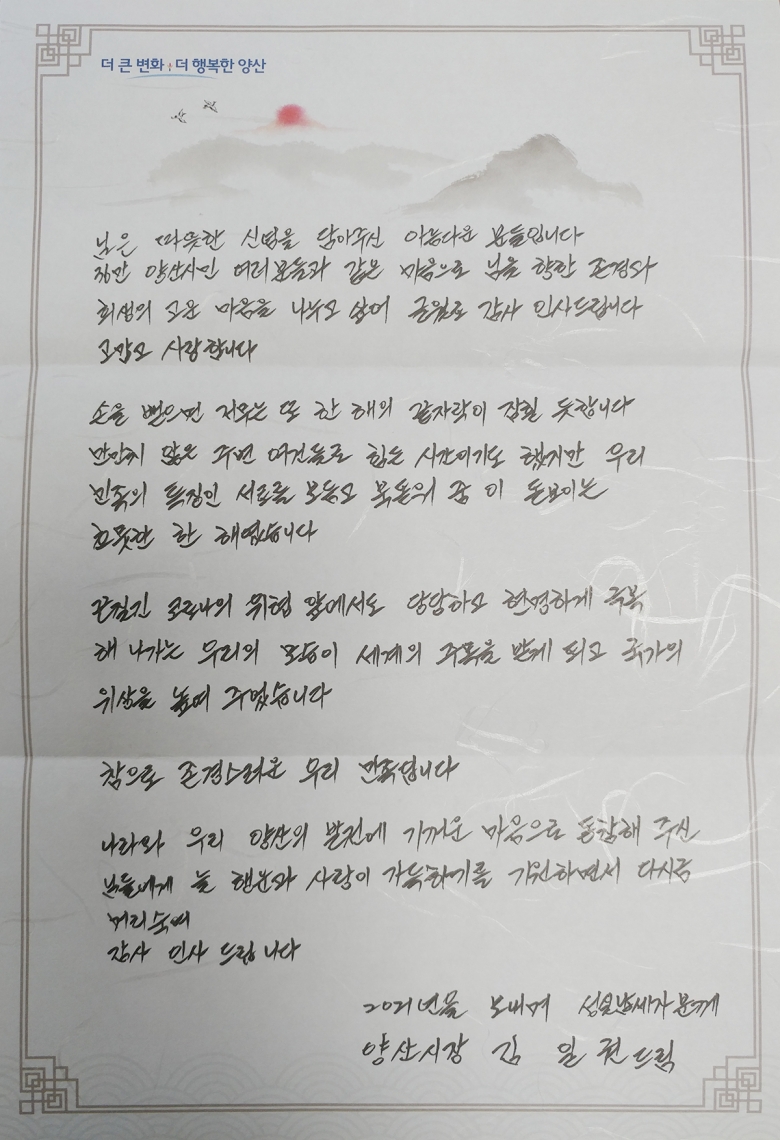 더 큰 변화 더 행복한 양산
님은 따뜻한 신념을 담아주신 아름다운 분들입니다
36만 양산시민 여러분들과 같은 마음으로 님을 향한 존경과
희생의 고운 마음을 나누고 싶어 글월로 감사 인사드립니다
고맙고 사랑합니다
손을 뻗으면 저무는 또 한 해의 끝자락이 잡힐 듯합니다
만만치 않은 주변 여건들로 힘든 시간이기도 했지만 우리
민족의 특징인 서로를 보듬고 묵은의 중 이 돋보이는
흐뭇한 한 해였습니다
끈질긴 코로나의 위협 앞에서도 당당하고 현명하게 극복
해 나가는 우리의 모습이 세계의 주목을 받게 되고 국가의
위상을 높여 주었습니다
참으로 존경스러운 우리 민족입니다
나라와 우리 양산의 발전에 기꺼운 마음으로 동참해 주신
님들에게 늘 행운과 사랑이 가득하기를 기원하면서 다시금
머리숙여
감사 인사 드립니다
2021년을 보내며 성실납세자분께
양산시장 김 일 권 드림